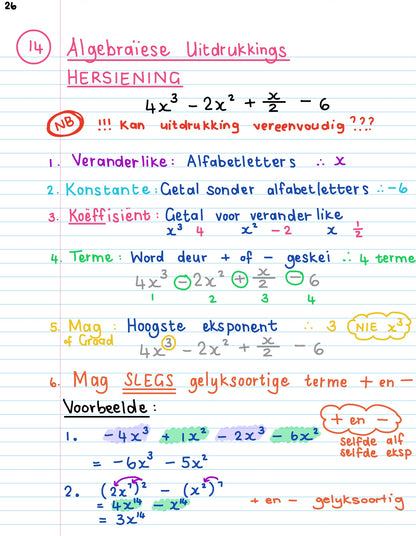 26
14 Algebraïese Uitdrukkings
HERSIENING
4x³ - 2x² + x/2 - 6
NB !!! Kan uitdrukking vereenvoudig ???
1. Veranderlike : Alfabetletters ∴ x
2. Konstante : Getal sonder alfabetletters ∴ -6
3. Koëffisiënt : Getal voor veranderlike
x³ 4 x² -2 x 1/2
4. Terme : Word deur + of - geskei ∴ 4 terme
4x³ - 2x² + x/2 - 6
1 2 3 4
5. Mag of Graad : Hoogste eksponent ∴ 3 NIE x³
4x³ - 2x² + x/2 - 6
6. Mag SLEGS gelyksoortige terme + en -
Voorbeelde :
+ en -
selfde alf
selfde eksp
1. -4x³ + 1x² - 2x³ - 6x²
= -6x³ - 5x²
2. (2x⁷)² - (x²)⁷
= 4x¹⁴ - x¹⁴
+ en - gelyksoortig
= 3x¹⁴